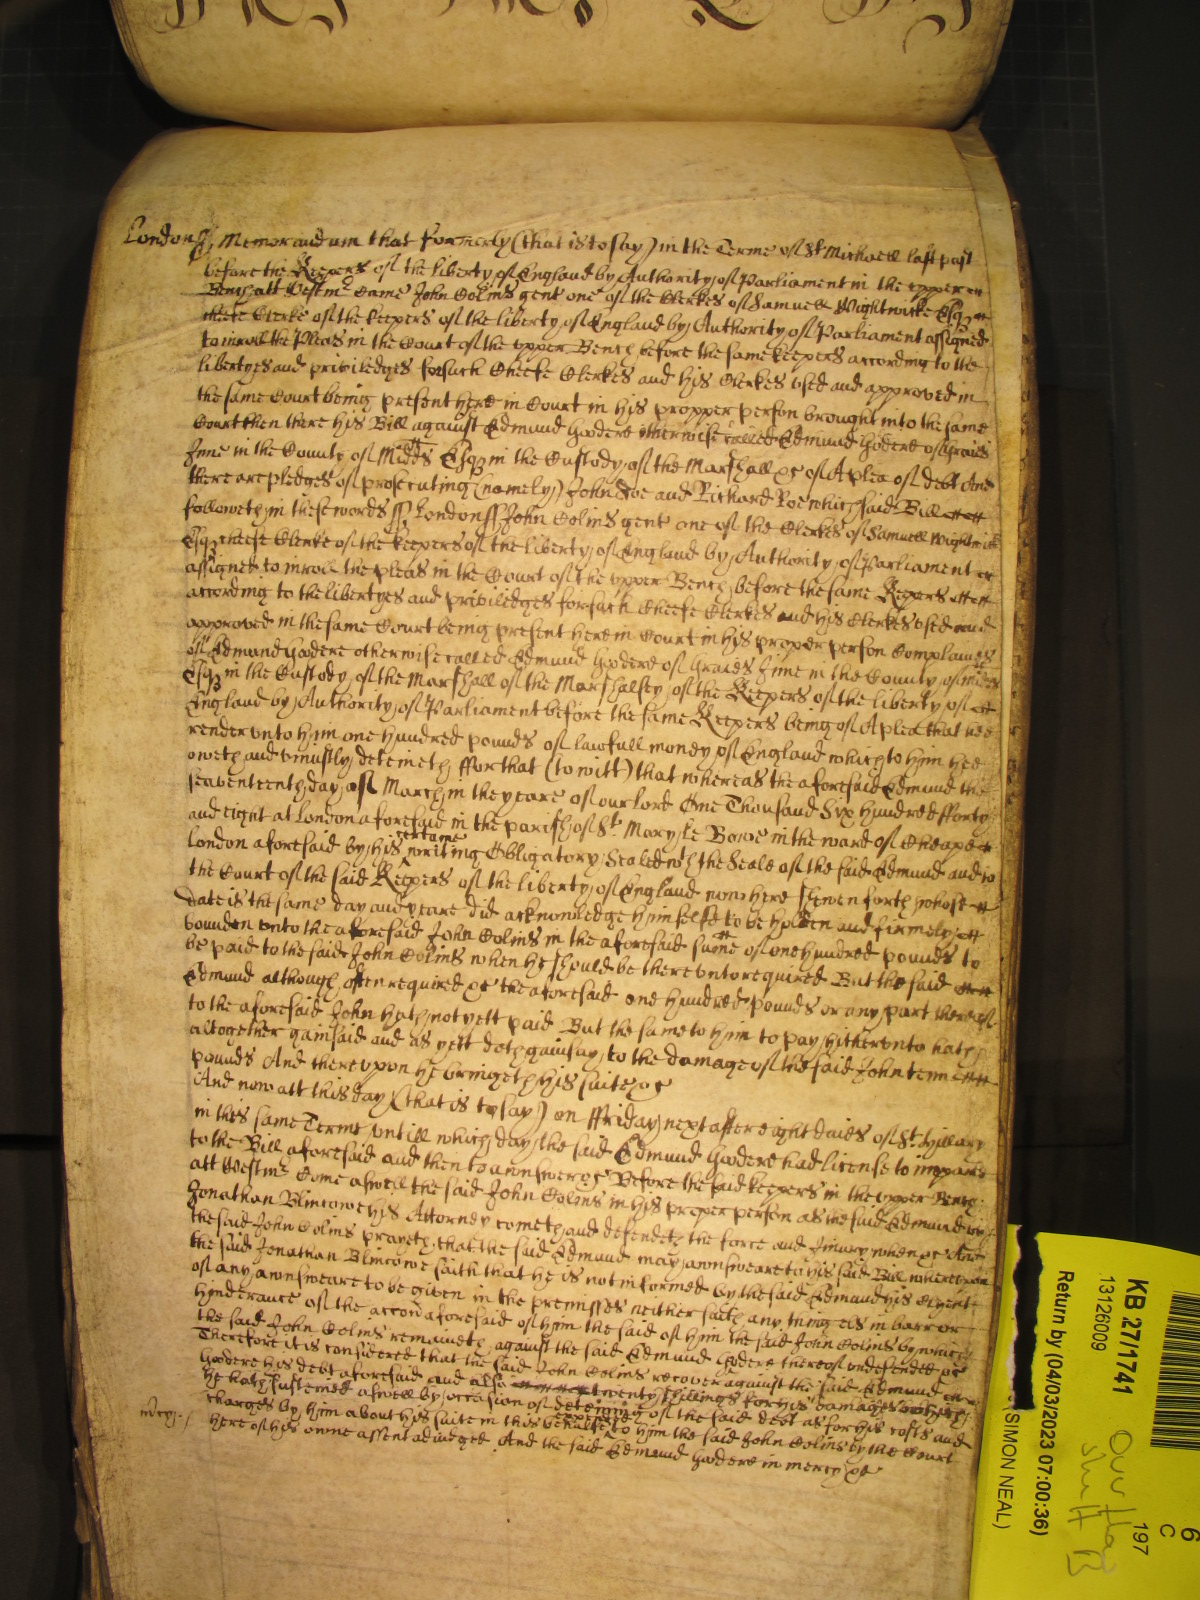 London ss Memorandum that formerly (that is to say) in the Terme of St Michaell last past
before the Keepers of the liberty of England by Authority of Parliament in the upper
Bench att Westmr Came John Colins gent one of the Clerkes of Samuell Wightwicke Esqr
cheefe Clerke of the keepers of the liberty of England by Authority of Parliament assigned
to inroll the Pleas in the Court of the upper Bench before the same keepers according to the
libertyes and priviledges for such Cheefe Clerkes and his Clerkes used and approved in
the same Court being present here in Court in his propper person brought into the same
Court then there his Bill against Edmund Goodere otherwise called Edmund Godere of Graies
Inne in the County of Midds Esqr in the Custody of the Marshall &c of A plea of debt And
there are pledges of prosecuting (namely) John Doe and Richard Roe which said Bill
followeth in these words ss London ss John Colins gent one of the Clerkes of Samuell Wightwick
Esqr cheefe Clerke of the keepers of the liberty of England by Authority of Parliament
assigned to inroll the pleas in the Court of the upper Bench before the same Keepers
according to the libertyes and priviledges for such Cheefe Clerkes and his Clerkes used and
approved in the same Court being present here in Court in his proper person Complaines
of Edmund Goodere otherwise called Edmund Goodere of Graies Inne in the County of Midds
Esqr in the Custody of the Marshall of the Marshalsey of the Keepers of the liberty of
England by Authority of Parliament before the same Keepers being of A plea that hee
render unto him one hundred pounds of lawfull money of England which to him hee
oweth and uniustly deteineth ffor that (to witt) that whereas the aforesaid Edmund the
seaventeenth day of March in the yeare of our lord One Thousand Six Hundred fforty
and eight at London aforesaid in the parish of St Mary le Bowe in the ward of Cheape
London aforesaid by his certaine writing Obligatory Sealed wth the Seale of the said Edmund and to
the Court of the said Keepers of the liberty of England now here shewen forth whose
date is the same day and yeare did acknowledge himselfe to be holden and firmely
bounden unto the aforesaid John Colins in the aforesaid sume of one hundred pounds to
be paid to the said John Colins when he should be thereunto required But the said
Edmund although often required &c the aforesaid one hundred pounds or any part thereof
to the aforesaid John hath not yett paid But the same to him to pay hitherunto hath
altogether gainsaid and as yett doth gainsay to the damage of the said John tenn
pounds And thereupon he bringeth his suite &c
And now att this day (that is to say) on ffriday next after eight daies of St Hillary
in this same Terme untill which day the said Edmund Goodere had license to imparle
to the Bill aforesaid and then to answwer &c Before the said keepers in the upper Bench
att Westmr Come aswell the said John Colins in his proper person as the said Edmund by
Jonathan Blincowe his Attorney cometh and defendeth the force and Iniury when &c And
the said John Colins prayeth that the said Edmund may answweare to his said Bill whereupon
the said Jonathan Blincowe saith that he is not informed by the said Edmund his Clyent
of any answweare to be given in the premisses neither saith any thing els in barr or
hinderance of the accon aforesaid of him the said of him the said John Colins by which
the said John Colins remaineth against the said Edmund Godere thereof undefended &c
Therefore it is considered that the said John Colins recover against the said Edmund
Goodere his debt aforesaid and also twenty shillings for his damages which
he hath susteined aswell by occasion of deteining of the said debt as for his costs and
charges by him about his suite in this behalfe to him the said John Colins by the Court
mercy / here of his owne assent adiudged And the said Edmund Goodere in mercy &c
KB 27/1741
13126009
Return by (04/03/2023 07:00:36)
(SIMON NEAL)
6
C
197